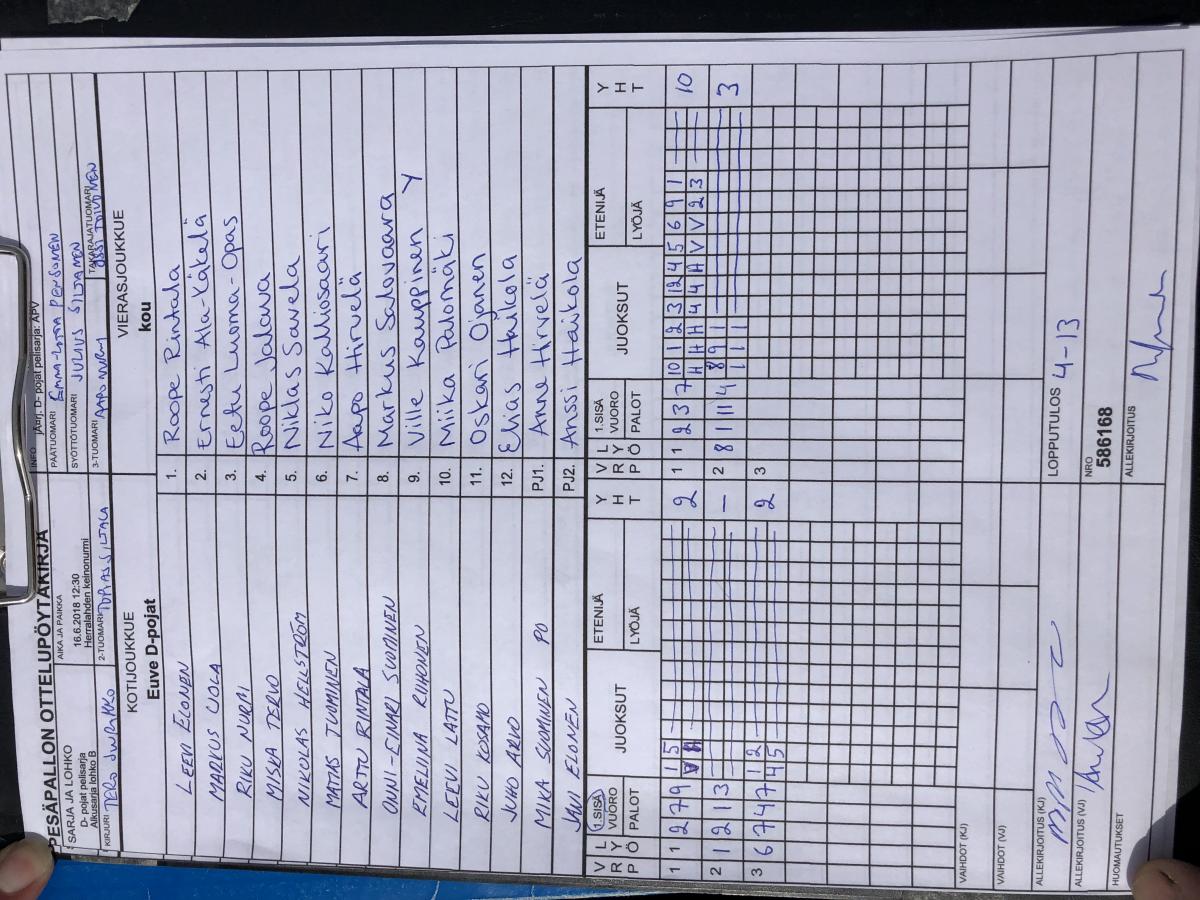 PESÄPALLON OTTELUPÖYTÄKIRJA
SARJA JA LOHKO
D- pojat pelisarja
Alkusarja lohko B
AIKA JA PAIKKA
16.6.2018 12:30
Herralahden keinonurmi
INFO
D- pojat pelisarja: APV
PÄÄTUOMARI EMMA-LOTTA
SYÖTTÖTUOMARI JULIUS
KIRJURI TERO
2-TUOMARI
3-TUOMARI AAPO NURMI
TAKARAJATUOMARI
KOTIJOUKKUE
Euve D-pojat
VIERASJOUKKUE
kou
LEEVI ELONEN 1. Roope Rintala
MARKUS 2. Ernesti Ala-Käkelä
RIKU NURMI 3. Eetu Luoma-Opas
MISKA TERVO 4. Roope Jalava
NIKOLAS HELLSTRÖM 5. Niklas Savela
MATIAS TUOMINEN 6. Niko Kalliosaari
ARTTU RINTALA 7. Aapo Hirvelä
ONNI-EINARI SUOMINEN 8. Markus Salovaara
EMELIINA RUOHONEN 9. Ville Kauppinen Y
LEEVI LATTU 10. Miika Palomäki
RIKU KOSAMO 11. Oskari Ojanen
JUHO ARVO 12. Elias Haikola
MIKA SUOMINEN PO PJ1. Anne Hirvelä
JANI ELONEN PJ2. Anssi Haikola
V R P L Y Ö 1.SISÄ VUORO PALOT JUOKSUT ETENIJÄ LYÖJÄ Y H T V R P L Y Ö 1.SISÄ VUORO PALOT JUOKSUT ETENIJÄ LYÖJÄ Y H T
1 1 2 7 9 1 5 2 1 1 2 3 7 10 1 2 3 12 4 5 6 9 1 10
H H H 4 4 H V V 2 3
2 1 2 1 3 — 2 8 1 11 4 8 9 1 3
1 1 1
3 6 7 4 7 1 2 2 3
4 5
VAIHDOT (KJ)
VAIHDOT (VJ)
ALLEKIRJOITUS (KJ)
LOPPUTULOS 4-13
ALLEKIRJOITUS (VJ)
NRO
586168
HUOMAUTUKSET
ALLEKIRJOITUS